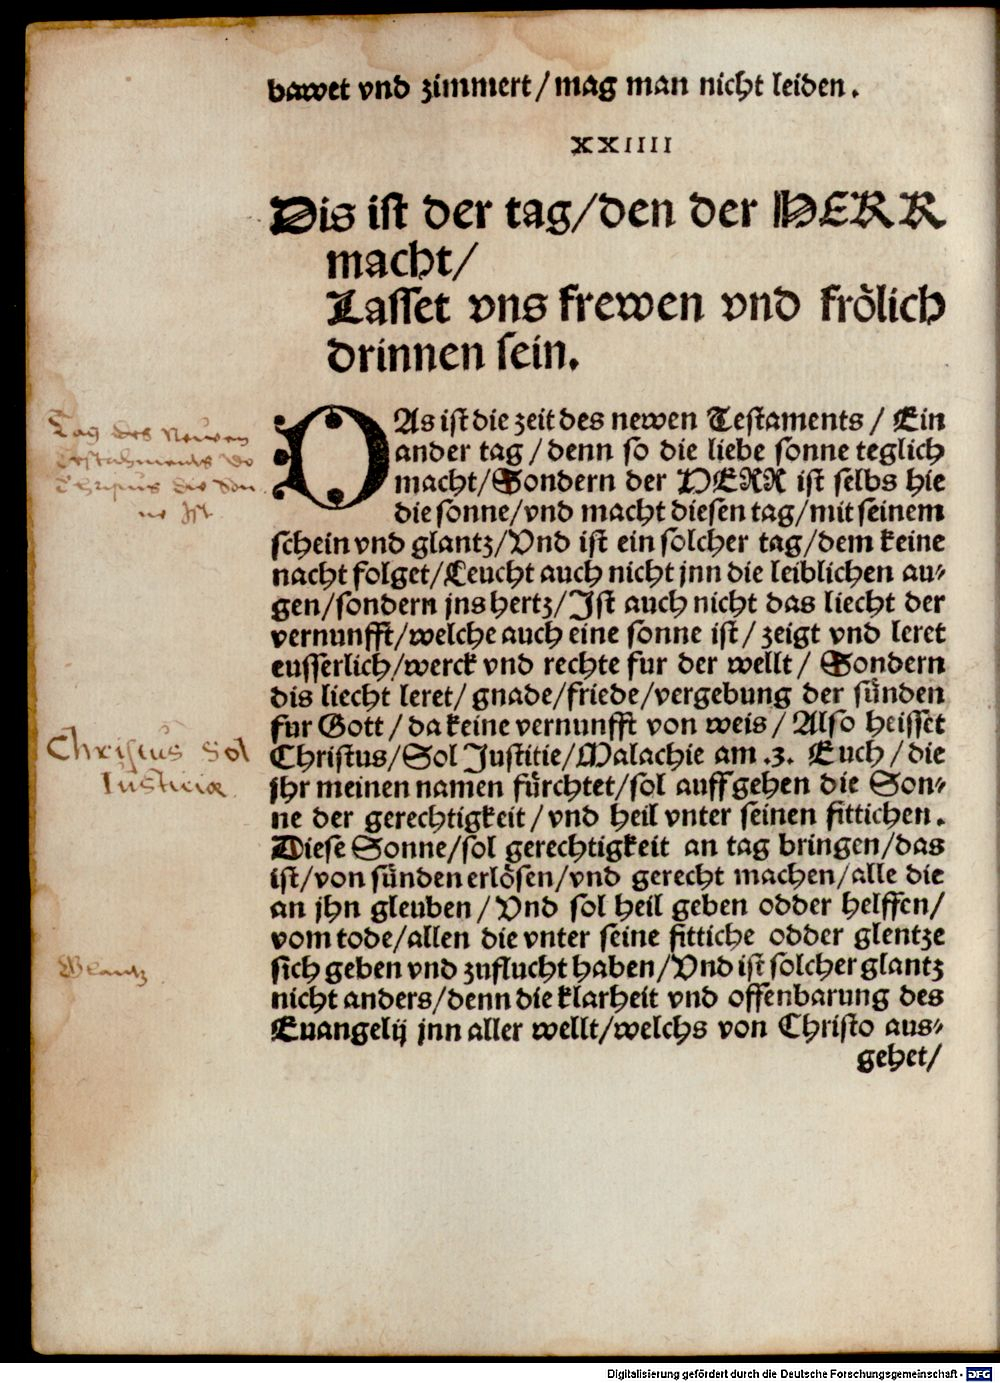 bawet vnd zimmert / mag man nicht leiden.
XXIIII
Dis ist der tag / den der HERR
macht /
Lasset vns frewen vnd frölich
drinnen sein.
DAs ist die zeit des newen Testaments / Ein
ander tag / denn so die liebe sonne teglich
macht / Sondern der HERR ist selbs hie
die sonne / vnd macht diesen tag / mit seinem
schein vnd glantz / Vnd ist ein solcher tag / dem keine
nacht folget / Leucht auch nicht jnn die leiblichen au-
gen / sondern jns hertz / Ist auch nicht das liecht der
vernunfft / welche auch eine sonne ist / zeigt vnd leret
eusserlich / werck vnd rechte fur der wellt / Sondern
dis liecht leret / gnade / friede / vergebung der sünden
fur Gott / da keine vernunfft von weis / Also heisset
Christus / Sol Justitie / Malachie am .3. Euch / die
jhr meinen namen fürchtet / sol auffgehen die Son-
ne der gerechtigkeit / vnd heil vnter seinen fittichen.
Diese Sonne / sol gerechtigkeit an tag bringen / das
ist / von sünden erlösen / vnd gerecht machen / alle die
an jhn gleuben / Vnd sol heil geben odder helffen /
vom tode / allen die vnter seine fittiche odder glentze
sich geben vnd zuflucht haben / Vnd ist solcher glantz
nicht anders / denn die klarheit vnd offenbarung des
Euangelij jnn aller wellt / welchs von Christo aus-
gehet /
Tag des Neuwen
Testahments do
Christus die Son
ne Ist
Christus Sol
Iusticiæ
Glantz
Digitalisierung gefördert durch die Deutsche Forschungsgemeinschaft - DFG